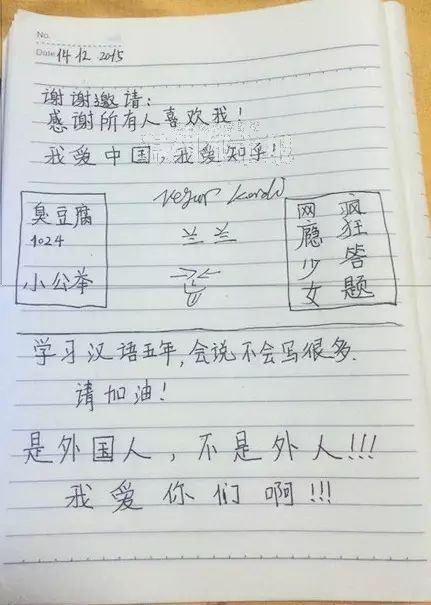 No.
Date 14 12 2015
谢谢邀请:
感谢所有人喜欢我!
我爱中国,我爱知乎!
Negar Kordi
兰兰
臭豆腐
1024
小公举
网瘾少女
疯狂答题
学习汉语五年,会说不会写很多.
请加油!
是外国人,不是外人!!!
我爱你们啊!!!